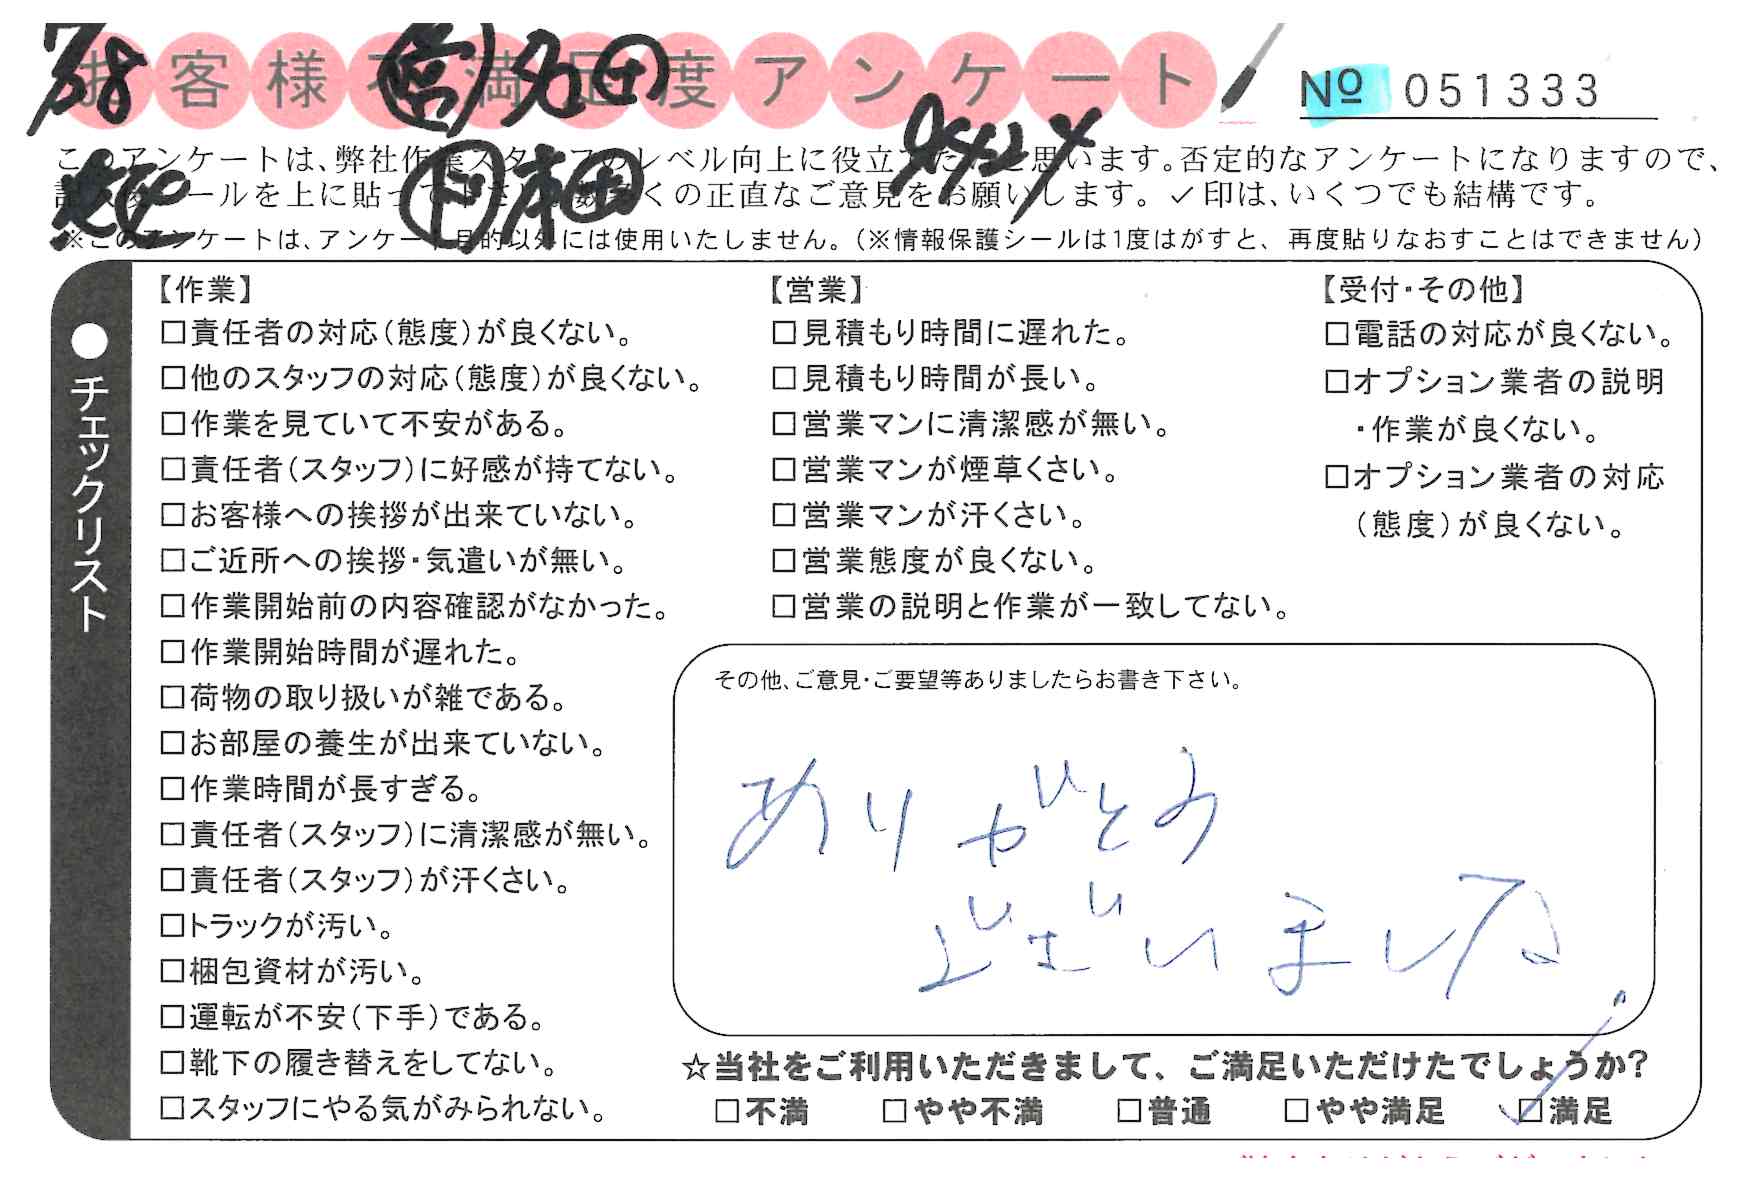 お客様不満足度アンケート
7/8
営 名田
Nº 051333
このアンケートは、弊社作業スタッフのレベル向上に役立てたいと思います。否定的なアンケートになりますので、
記入後シールを上に貼って下さい。数多くの正直なご意見をお願いします。✓印は、いくつでも結構です。
※このアンケートは、アンケート目的以外には使用いたしません。(※情報保護シールは1度はがすと、再度貼りなおすことはできません)
●チェックリスト
【作業】
□責任者の対応(態度)が良くない。
□他のスタッフの対応(態度)が良くない。
□作業を見ていて不安がある。
□責任者(スタッフ)に好感が持てない。
□お客様への挨拶が出来ていない。
□ご近所への挨拶・気遣いが無い。
□作業開始前の内容確認がなかった。
□作業開始時間が遅れた。
□荷物の取り扱いが雑である。
□お部屋の養生が出来ていない。
□作業時間が長すぎる。
□責任者(スタッフ)に清潔感が無い。
□責任者(スタッフ)が汗くさい。
□トラックが汚い。
□梱包資材が汚い。
□運転が不安(下手)である。
□靴下の履き替えをしてない。
□スタッフにやる気がみられない。
【営業】
□見積もり時間に遅れた。
□見積もり時間が長い。
□営業マンに清潔感が無い。
□営業マンが煙草くさい。
□営業マンが汗くさい。
□営業態度が良くない。
□営業の説明と作業が一致してない。
【受付・その他】
□電話の対応が良くない。
□オプション業者の説明
・作業が良くない。
□オプション業者の対応
(態度)が良くない。
その他、ご意見・ご要望等ありましたらお書き下さい。
ありがとう
ございました
☆当社をご利用いただきまして、ご満足いただけたでしょうか?
□不満 □やや不満 □普通 □やや満足 ☑満足